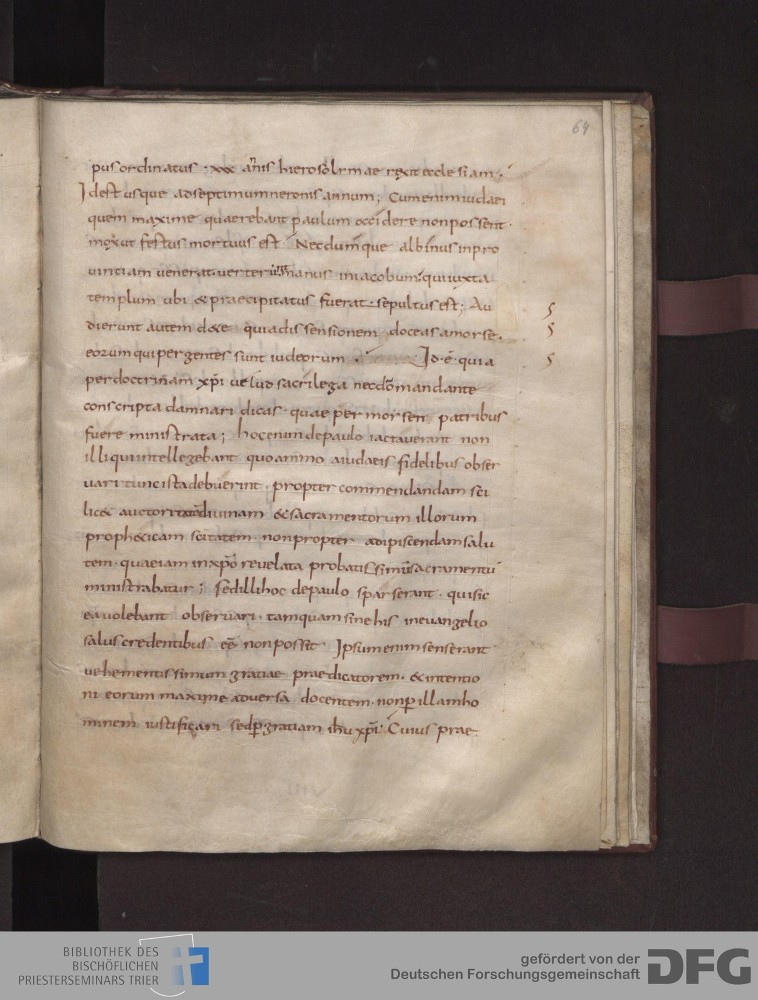 64
pus ordinatus · xxx annis hierosolymae rexit ecclesiam ·
Id est usque ad septimum neronis annum ; Cum enim iudaei
quem maxime quaerebant paulum occidere non possent ·
mox ut festus mortuus est Necdumque albinus in pro
uintiam uenerat uerterunt manus in iacobum · qui iuxta
templum ubi & praecipitatus fuerat sepultus est ; Au
dierunt autem de te quia dissensionem doceas a morse ·
eorum qui per gentes sunt iudeorum · Id · ē · quia
per doctrinam xp̄i uelud sacrilega nec dō mandante
conscripta damnari dicas · quae per morsen patribus
fuere ministrata ; hoc enim de paulo iactauerant non
illi qui intellegebant quo animo a iudaeis fidelibus obser
uari tunc ista debuerint · propter commendandam sci
lic& auctoritatem diuinam & sacramentorum illorum
proph&icam scitatem · non propter adipiscendam salu
tem · quae iam in xp̄o reuelata probatissimum sacramentū
ministrabatur ; sed illi hoc de paulo sparserant · qui sic
ea uolebant obseruari · tamquam sine his in euangelio
salus credentibus eē non possit Ipsum enim senserant
uehementissimum gratiae praedicatorem · & intentio
ni eorum maxime aduersa docentem · non ꝑ illa ho
minem iustificari sed ꝑ gratiam ih̄u xp̄i · Cuius prae
BIBLIOTHEK DES
BISCHÖFLICHEN
PRIESTERSEMINARS TRIER
gefördert von der
Deutschen Forschungsgemeinschaft
DFG